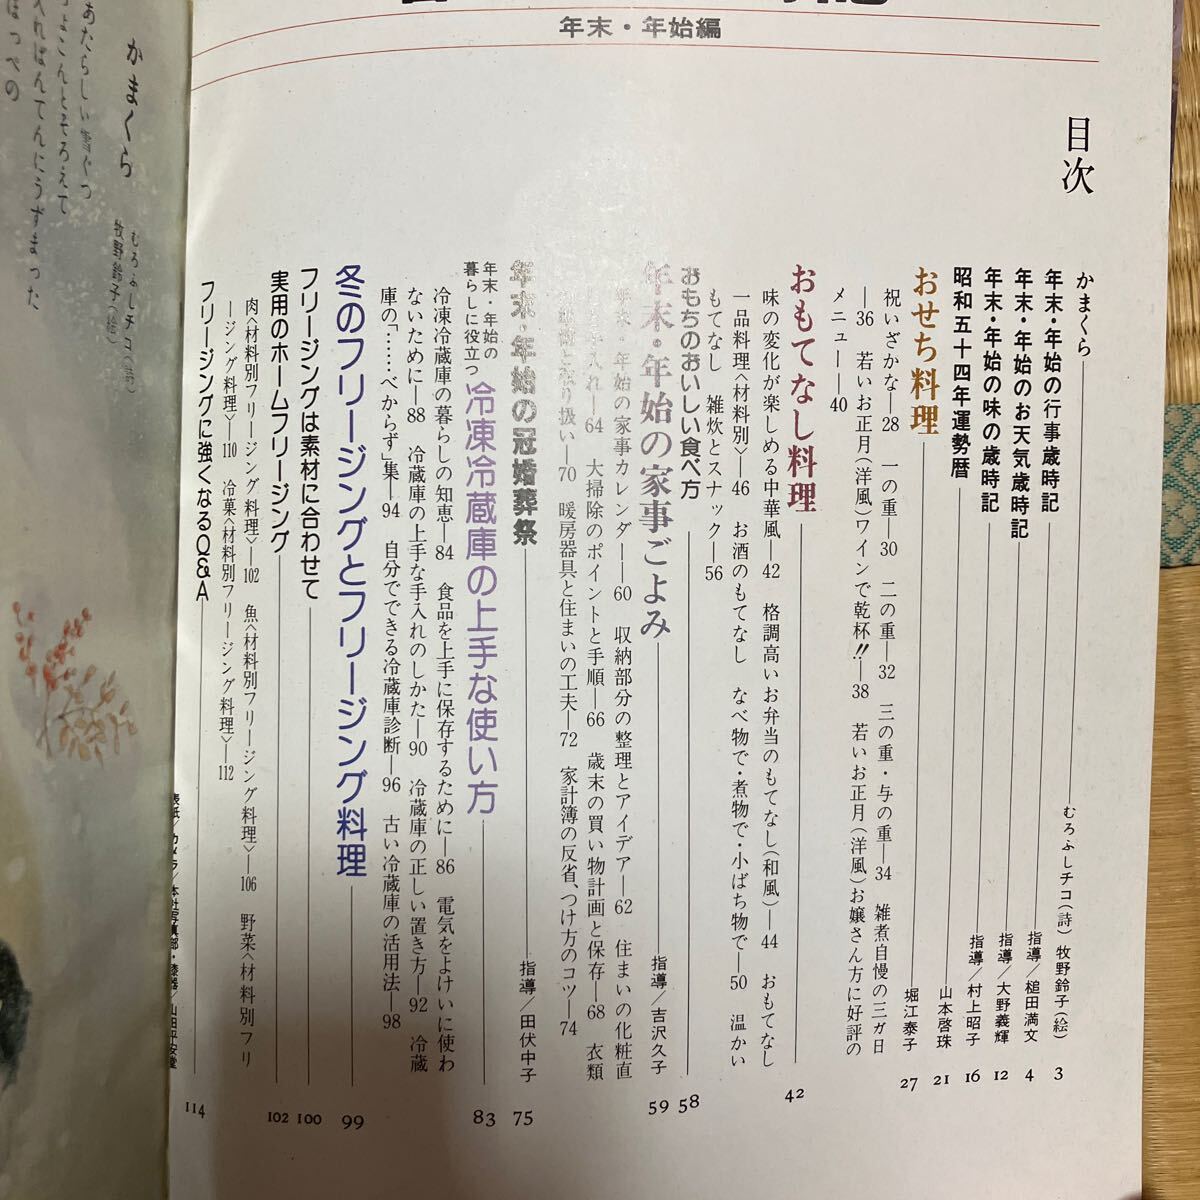 年末・年始編
目次
かまくら むろふしチコ(詩) 牧野鈴子(絵) 3
年末・年始の行事歳時記 指導/槌田満文 4
年末・年始のお天気歳時記 指導/大野義輝 12
年末・年始の味の歳時記 指導/村上昭子 16
昭和五十四年運勢暦 山本啓珠 21
おせち料理 堀江泰子 27
祝いざかな―28 一の重―30 二の重―32 三の重・与の重―34 雑煮自慢の三ガ日
―36 若いお正月(洋風)ワインで乾杯!!―38 若いお正月(洋風)お嬢さん方に好評の
メニュー―40
おもてなし料理 42
味の変化が楽しめる中華風―42 格調高いお弁当のもてなし(和風)―44 おもてなし
一品料理<材料別>―46 お酒のもてなし なべ物で・煮物で・小ばち物で―50 温かい
もてなし 雑炊とスナック―56
おもちのおいしい食べ方 58
年末・年始の家事ごよみ 指導/吉沢久子 59
年末・年始の家事カレンダー―60 収納部分の整理とアイデア―62 住まいの化粧直
手入れ―64 大掃除のポイントと手順―66 歳末の買い物計画と保存―68 衣類
取り扱い―70 暖房器具と住まいの工夫―72 家計簿の反省、つけ方のコツ―74
年末・年始の冠婚葬祭 指導/田伏中子 75
年末・年始の
暮らしに役立つ
冷凍冷蔵庫の上手な使い方 83
冷凍冷蔵庫の暮らしの知恵―84 食品を上手に保存するために―86 電気をよけいに使わ
ないために―88 冷蔵庫の上手な手入れのしかた―90 冷蔵庫の正しい置き方―92 冷蔵
庫の「……べからず」集―94 自分でできる冷蔵庫診断―96 古い冷蔵庫の活用法―98
冬のフリージングとフリージング料理 99
フリージングは素材に合わせて 100
実用のホームフリージング 102
肉<材料別フリージング料理>―102 魚<材料別フリージング料理>―106 野菜<材料別フリ
―ジング料理>―110 冷菓<材料別フリージング料理>―112
フリージングに強くなるQ&A 114
表紙/カメラ/本社写真部・漆器/山田平安堂
かまくら
むろふしチコ(詩)
牧野鈴子(絵)
あたらしい雪ぐつ
ちょこんとそろえて
入ればんてんにうずまった
ほっぺの